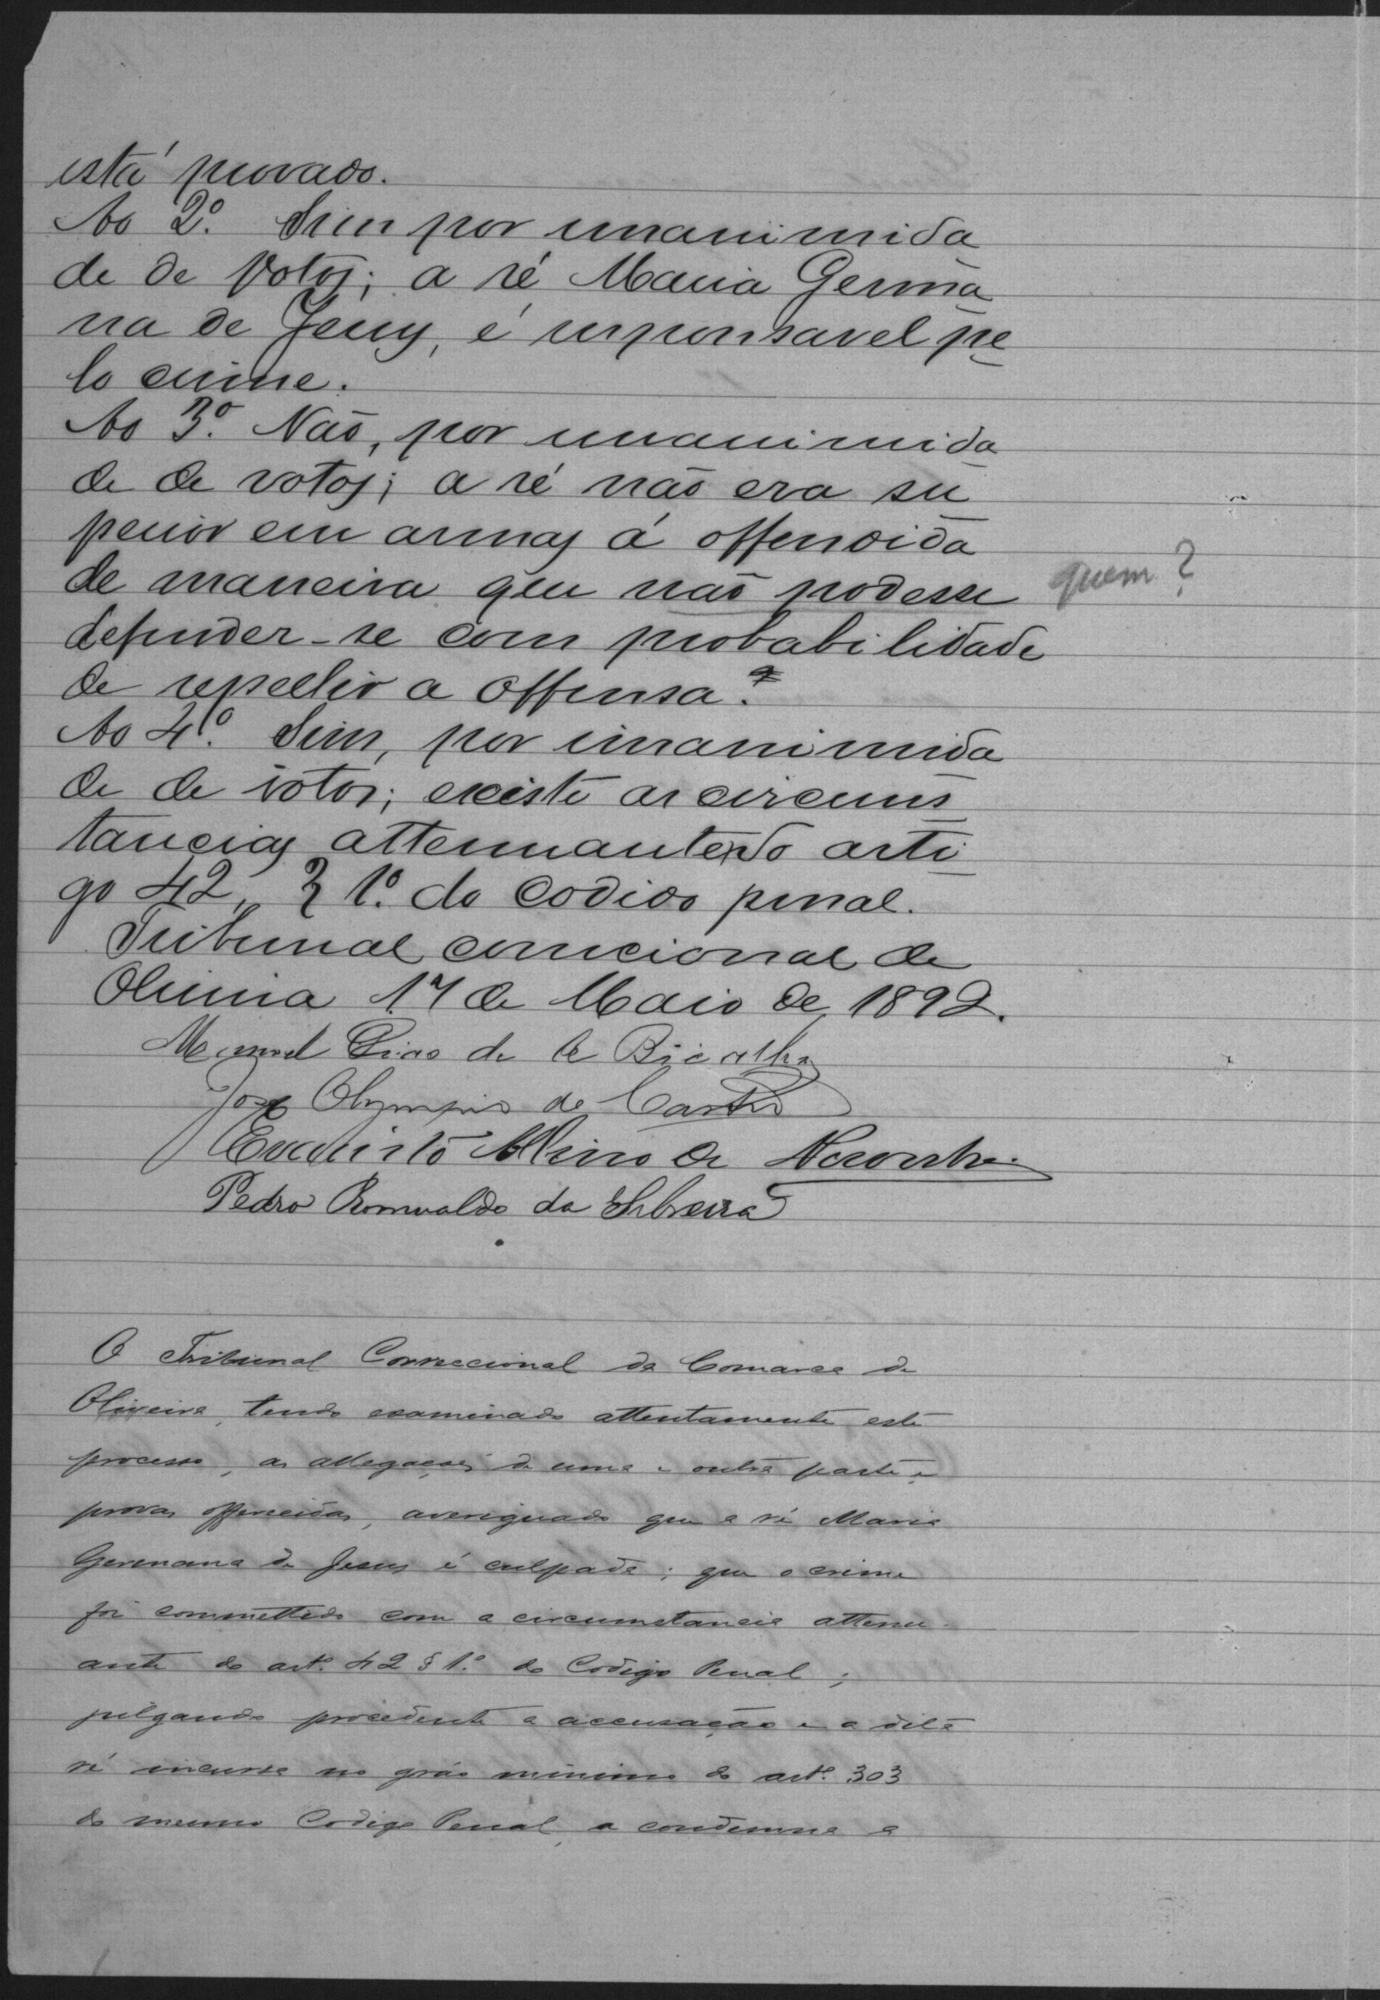 está provado.
Ao 2º. Sim por unanimida
de de votos; a ré Maria Germa
na de Jesus, é responsavel pe
lo crime.
Ao 3º. Não, por unanimida
de de votos; a ré não era su
perior em armas á offendida
de maneira que não podesse
quem?
defender-se com probabilidade
de repellir a offensa.
Ao 4º. Sim, por unanimida
de de votos; existe as circuns
tancias attenuantes do arti
go 42, § 1º. do codigo penal.
Tribunal correcional de
Oliveira 17 de Maio de 1892.
Manoel Dias de Bicalho
José Olympio de Castro
Evaristo de Noronha
Pedro Romualdo da Silveira
O Tribunal Correccional da Comarca de
Oliveira, tendo examinado attentamente este
processo, as allegações de uma e outra parte e
provas offerecidas, averiguado que a ré Maria
Germana de Jesus é culpada; que o crime
foi commettido com a circumstancia attenu-
ante do artº. 42 § 1º. do Codigo Penal;
julgando procedente a accusação e a dita
ré incursa no gráo minimo do artº. 303
do mesmo Codigo Penal, a condemna a